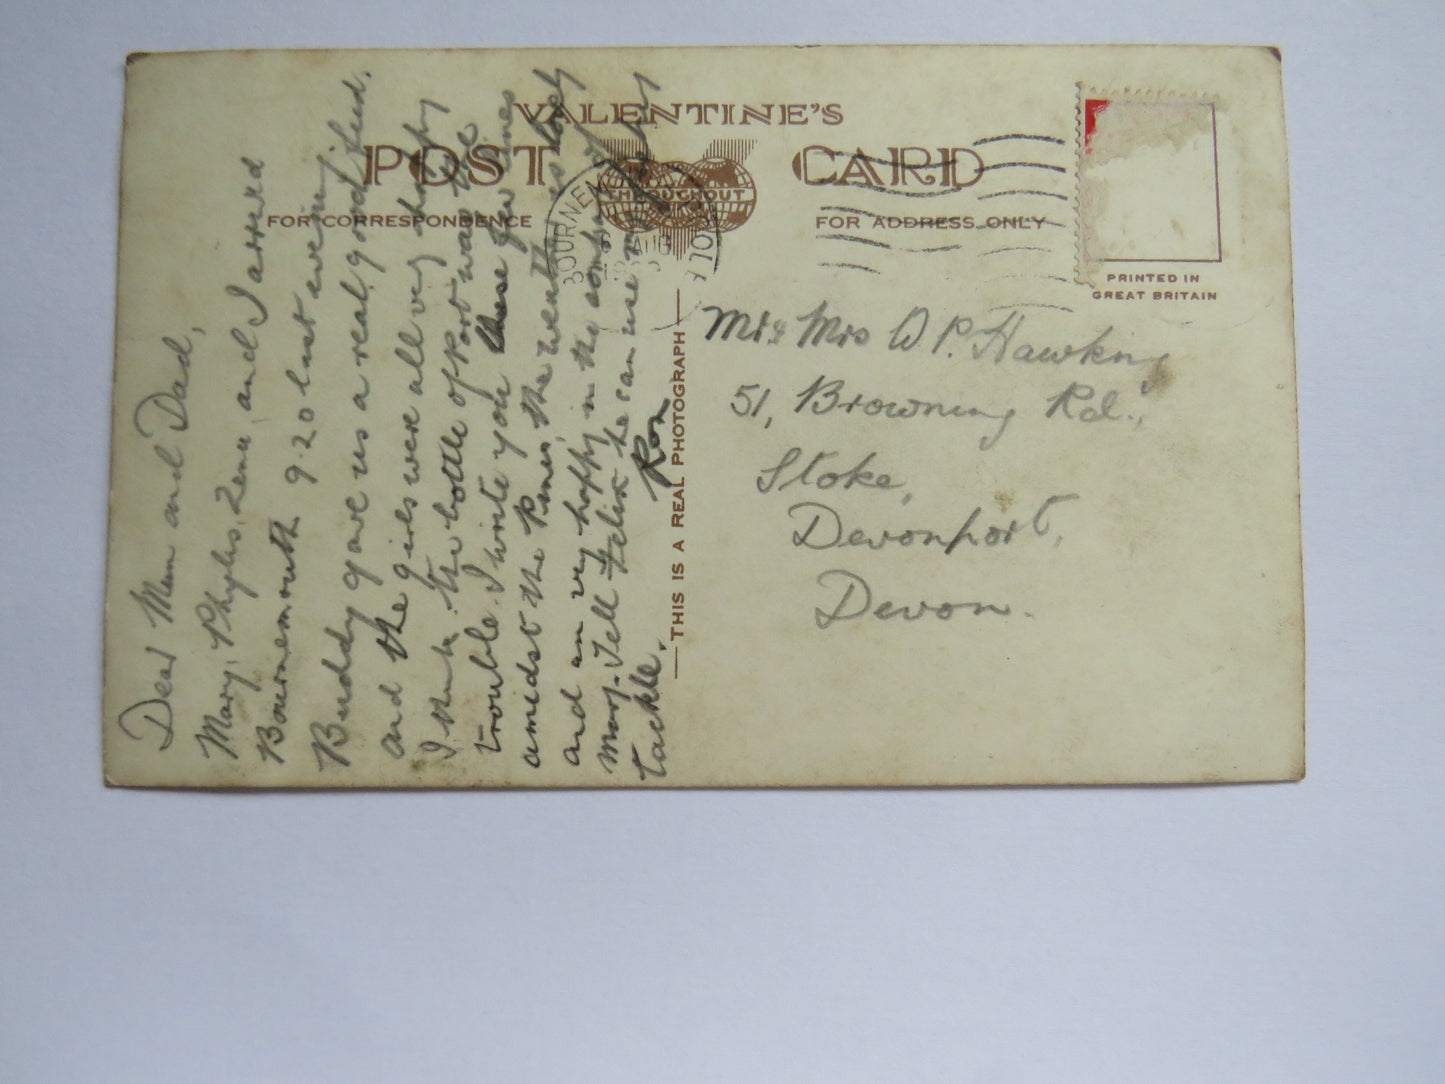 VALENTINE'S
POST CARD
THROUGHOUT
FOR CORRESPONDENCE
FOR ADDRESS ONLY
PRINTED IN
GREAT BRITAIN
BOURNEM
AUG
THIS IS A REAL PHOTOGRAPH
Dear Mum and Dad,
Mary, Phyllis, Zena, and I arrived
Bournemouth 9.20 last evening.
Buddy gave us a real good feed.
and the girls were all very happy
I think the bottle of Port was the
trouble. I write you these few lines
amidst the Pines the weather is lovely
and am very happy in the company of
Tell Felix he can use my
tackle. Ron
Mr & Mrs W P. Hawking
51, Browning Rd.,
Stoke,
Devonport,
Devon.